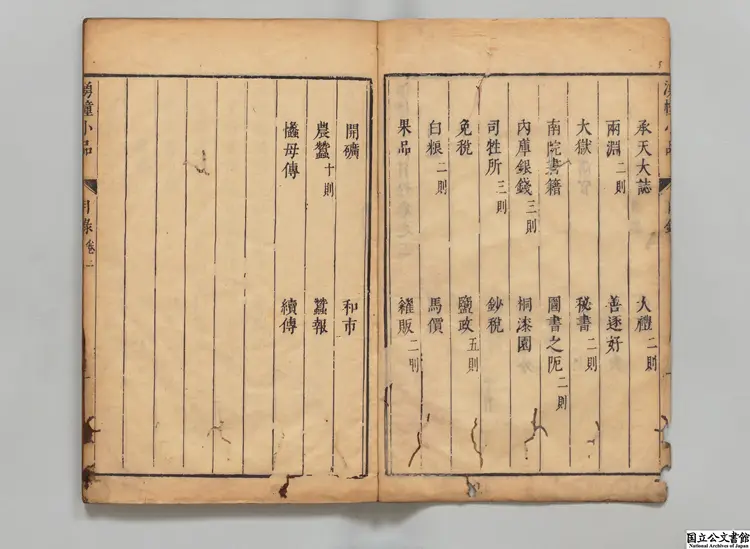 湧幢小品
目錄
承天大誌 大禮二則
兩淵二則 善逐好
大獄 秘書二則
南院書籍 閣書之阨二則
內庫銀錢三則 桐漆園
司牲所三則 鈔稅
免稅 鹽政五則
白粮二則 馬價
果品 販二則
開礦 和市
農蠶十則 蠶報
母傳 續傳
湧幢小品
目錄 卷二
国立公文書館
National Archives of Japan